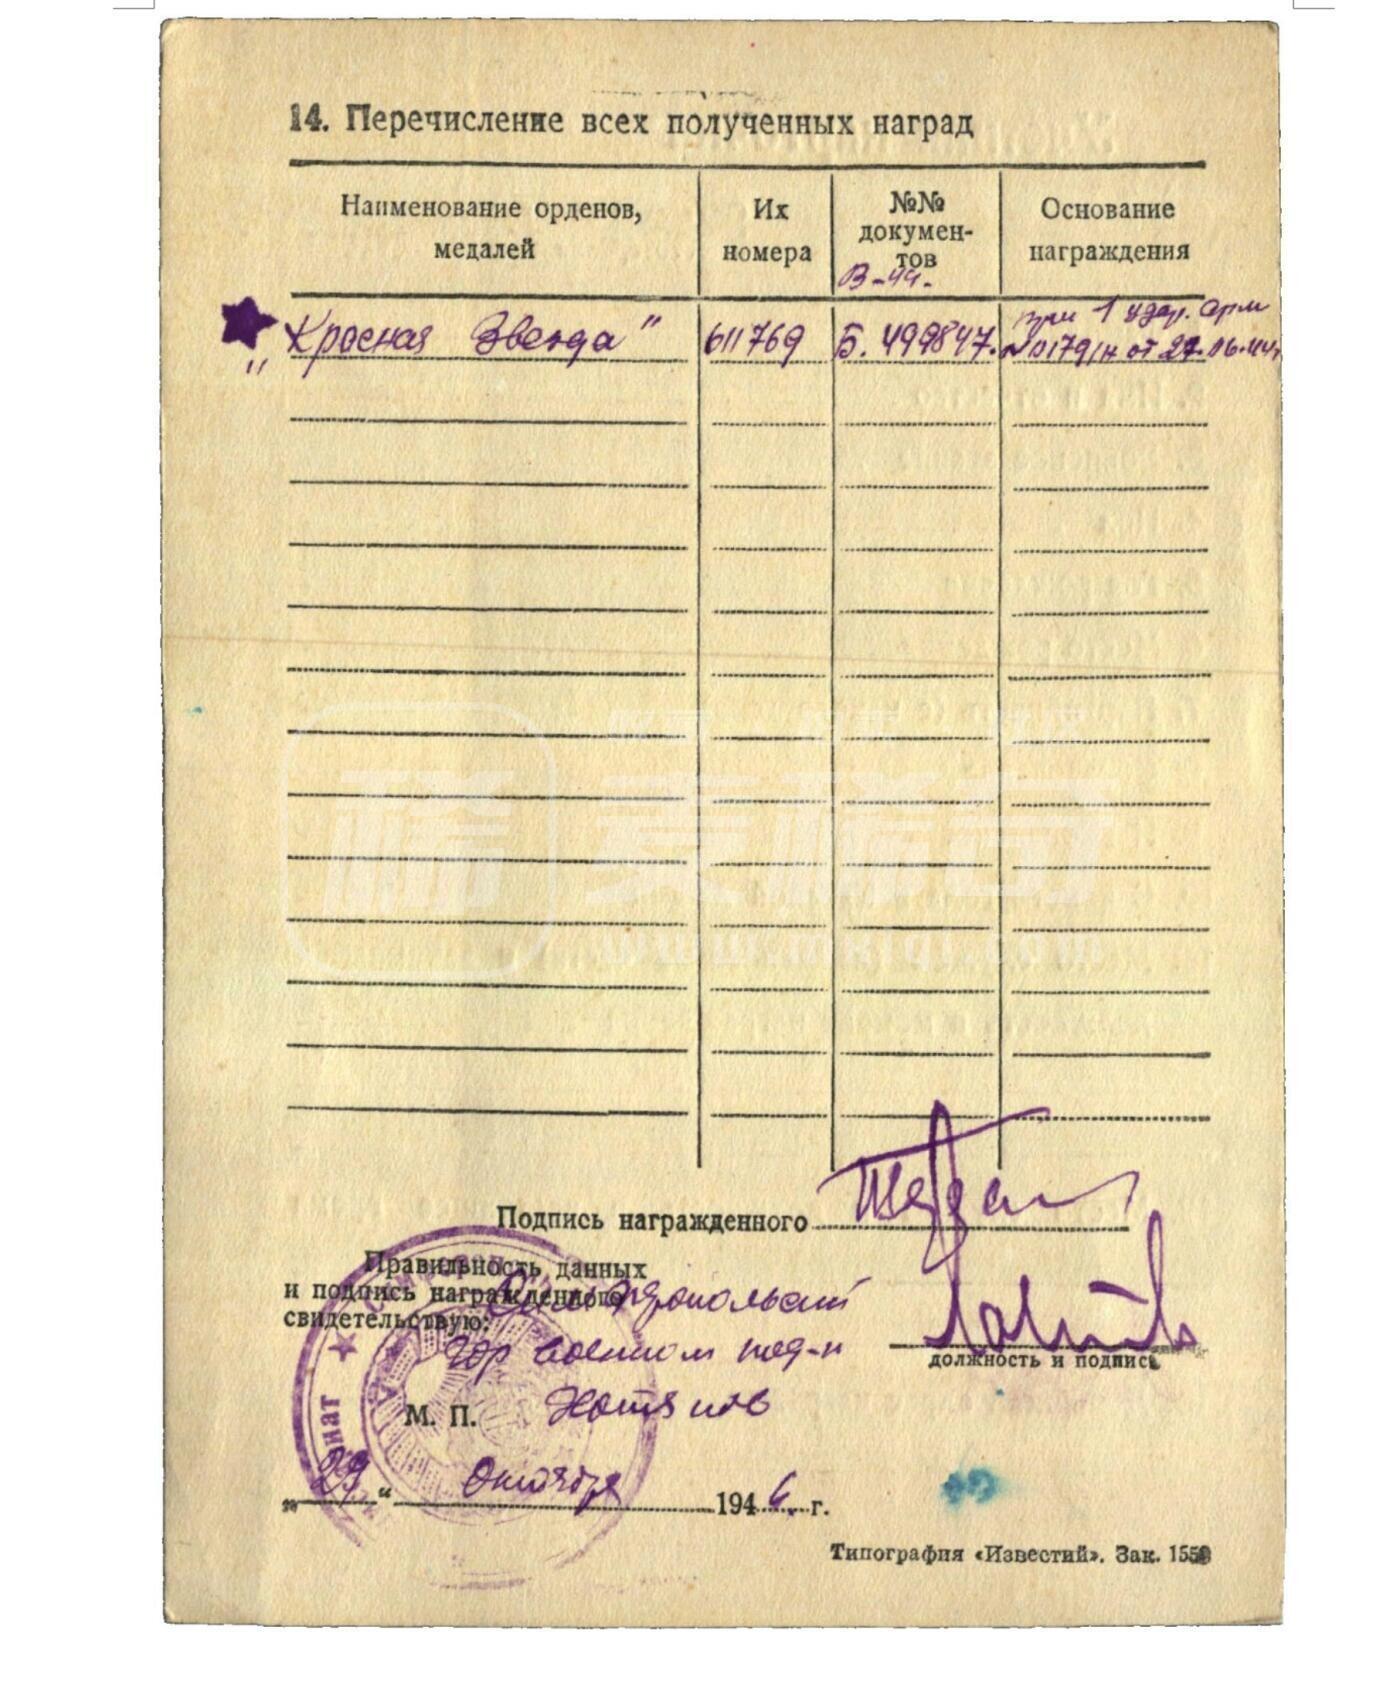 14. Перечисление всех полученных наград
Наименование орденов,
медалей
Их
номера
№№
докумен-
тов
В-44.
Основание
награждения
"Красная Звезда"
611769
Б. 499847.
при 1 удар. арм
№ 0179/н от 27.06.44г
Подпись награжденного
Правильность данных
и подпись награжденного
свидетельствую:
Симферопольский
гор военком под-к
должность и подпись
М. П.
"29" Октября 1946 г.
Типография «Известий». Зак. 1559
www.mxiqi.com